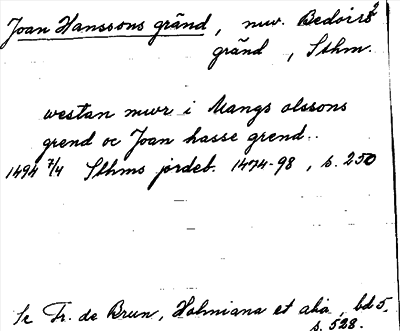 Joan Hanssons gränd, nuv. Bedoirs
gränd, Sthm.
westan mwr i Mangs olssons
grend oc Joan hasse grend..
1494 7/4 Sthms jordeb. 1474-98, s. 250
Se Fr. de Brun, Holmiana et alia, bd 5,
s. 528.